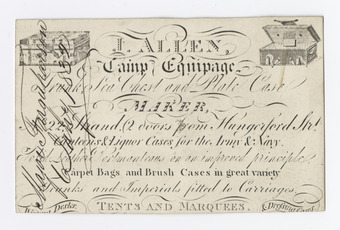 I. ALLEN,
Camp Equipage,
Trunk, Chest and Plate Case
MAKER,
Strand, 2 doors from Hungerford Mkt
Canteens & Liquor Cases for the Army & Navy.
Leather Portmanteaus on an improved principle
Carpet Bags and Brush Cases in great variety
Trunks and Imperials fitted to Carriages.
Desks.
TENTS AND MARQUEES.
Dressing Cases